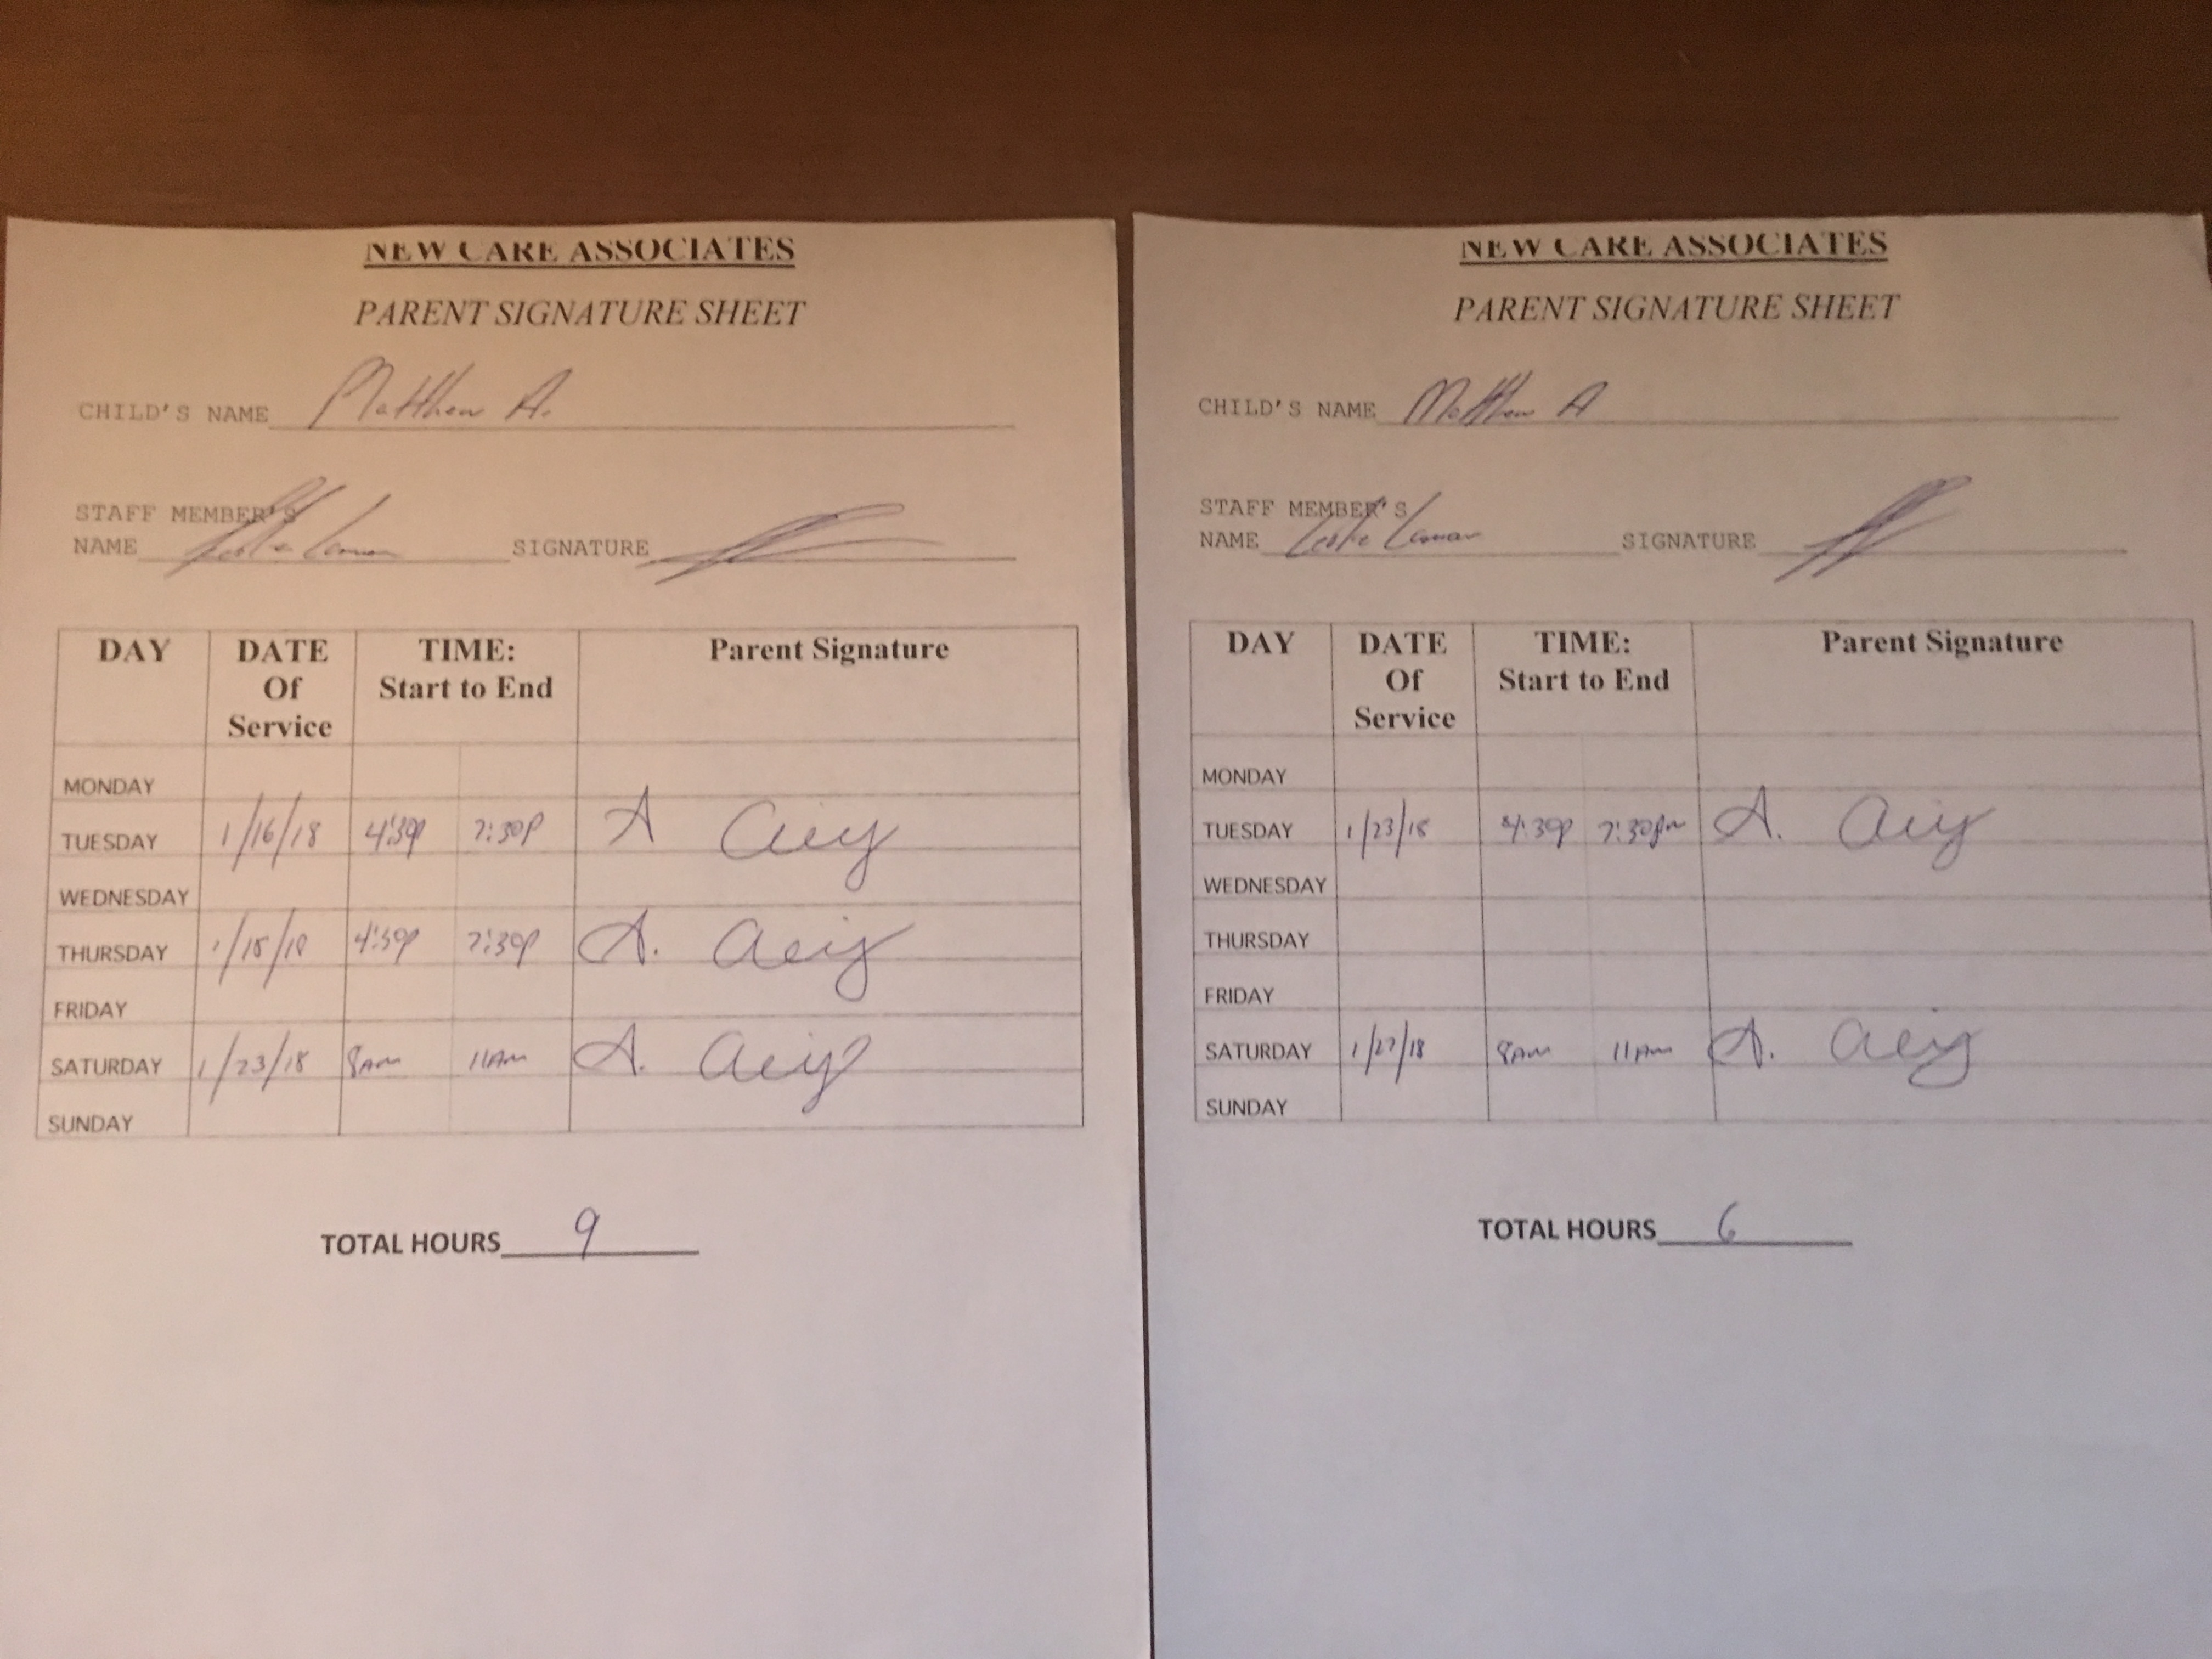 NEW CARE ASSOCIATES
PARENT SIGNATURE SHEET
CHILD'S NAME Matthew A.
STAFF MEMBER'S
NAME SIGNATURE
DAY DATE Of Service TIME: Start to End Parent Signature
MONDAY
TUESDAY 1/16/18 4:30p 7:30p A
WEDNESDAY
THURSDAY 1/18/18 4:30p 7:30p A.
FRIDAY
SATURDAY 1/23/18 8am 11am A.
SUNDAY
TOTAL HOURS 9
NEW CARE ASSOCIATES
PARENT SIGNATURE SHEET
CHILD'S NAME Matthew A
STAFF MEMBER'S
NAME SIGNATURE
DAY DATE Of Service TIME: Start to End Parent Signature
MONDAY
TUESDAY 1/23/18 4:30p 7:30pm A.
WEDNESDAY
THURSDAY
FRIDAY
SATURDAY 1/27/18 8am 11am A.
SUNDAY
TOTAL HOURS 6